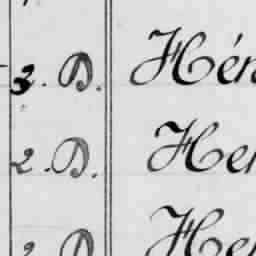 3. D. Hér
2. D. Her
2. D. Her